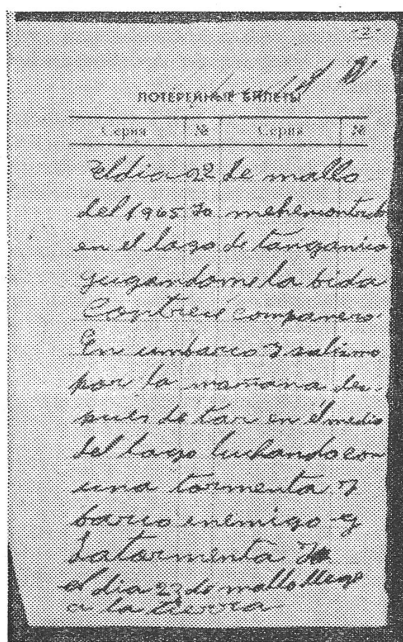 -2-
ЛОТЕРЕЙНЫЕ БИЛЕТЫ
Серия № Серия №
El dia 22 de mallo
del 1965 Yo mehencontrab
en el lago de tanganica
jugandome la bida
Contreü companero.
En umbarco y salimo
por la mañana des-
pues de tar en el medio
del lago luchando con
una tormenta y
barco enemigo y
La tarmenta Yo
el dia 23 de mallo llege
a la tierra